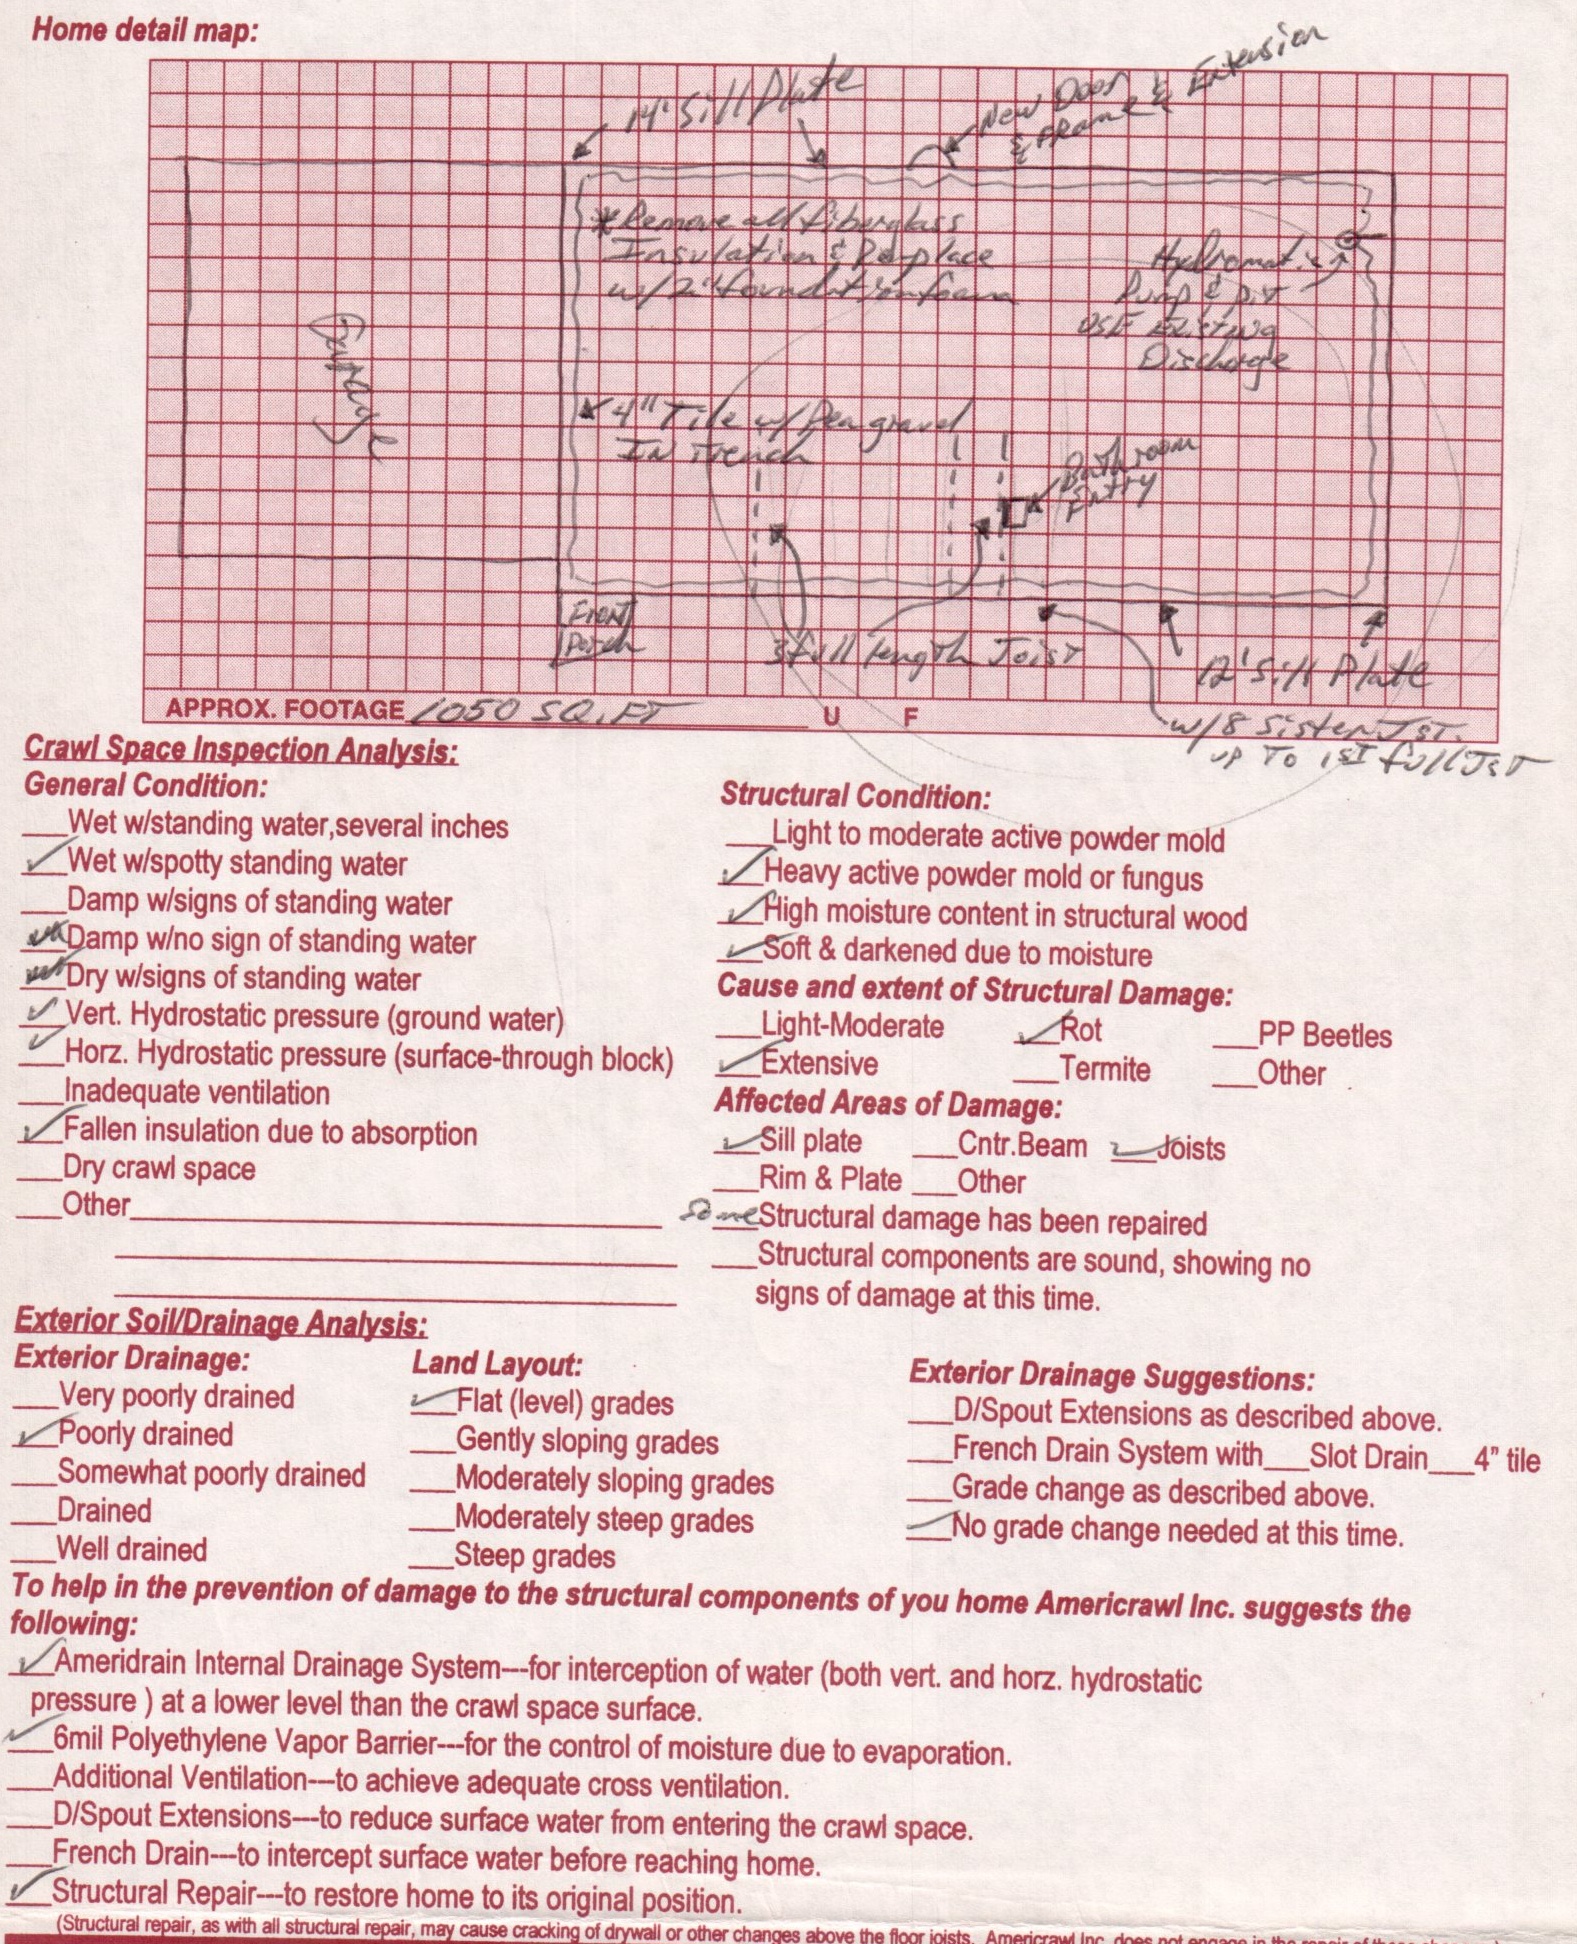 Home detail map:
14' Sill Plate
New Door & Extension
& Frame
*Remove all fiberglass
Insulation & Replace
w/2" foundation foam
Hydromatic
Pump & pit
USE Existing
Discharge
Garage
4" Tile w/ Pea gravel
IN Trench
Bathroom
Entry
Front
Porch
3 full length Joist
12' Sill Plate
APPROX. FOOTAGE 1050 SQ. FT U F
w/8 Sister Jst.
up To 1st full Jst
Crawl Space Inspection Analysis:
General Condition:
___Wet w/standing water,several inches
✓Wet w/spotty standing water
___Damp w/signs of standing water
Damp w/no sign of standing water
Dry w/signs of standing water
✓Vert. Hydrostatic pressure (ground water)
✓Horz. Hydrostatic pressure (surface-through block)
___Inadequate ventilation
✓Fallen insulation due to absorption
___Dry crawl space
___Other
Structural Condition:
___Light to moderate active powder mold
✓Heavy active powder mold or fungus
✓High moisture content in structural wood
✓Soft & darkened due to moisture
Cause and extent of Structural Damage:
___Light-Moderate ✓Rot ___PP Beetles
✓Extensive ___Termite ___Other
Affected Areas of Damage:
✓Sill plate ___Cntr.Beam ✓Joists
___Rim & Plate ___Other
Some Structural damage has been repaired
___Structural components are sound, showing no
signs of damage at this time.
Exterior Soil/Drainage Analysis:
Exterior Drainage:
___Very poorly drained
✓Poorly drained
___Somewhat poorly drained
___Drained
___Well drained
Land Layout:
✓Flat (level) grades
___Gently sloping grades
___Moderately sloping grades
___Moderately steep grades
___Steep grades
Exterior Drainage Suggestions:
___D/Spout Extensions as described above.
___French Drain System with___Slot Drain___4" tile
___Grade change as described above.
✓No grade change needed at this time.
To help in the prevention of damage to the structural components of you home Americrawl Inc. suggests the
following:
✓Ameridrain Internal Drainage System---for interception of water (both vert. and horz. hydrostatic
pressure ) at a lower level than the crawl space surface.
✓6mil Polyethylene Vapor Barrier---for the control of moisture due to evaporation.
___Additional Ventilation---to achieve adequate cross ventilation.
___D/Spout Extensions---to reduce surface water from entering the crawl space.
___French Drain---to intercept surface water before reaching home.
✓Structural Repair---to restore home to its original position.
(Structural repair, as with all structural repair, may cause cracking of drywall or other changes above the floor joists. Americrawl Inc. does not engage in the repair of these